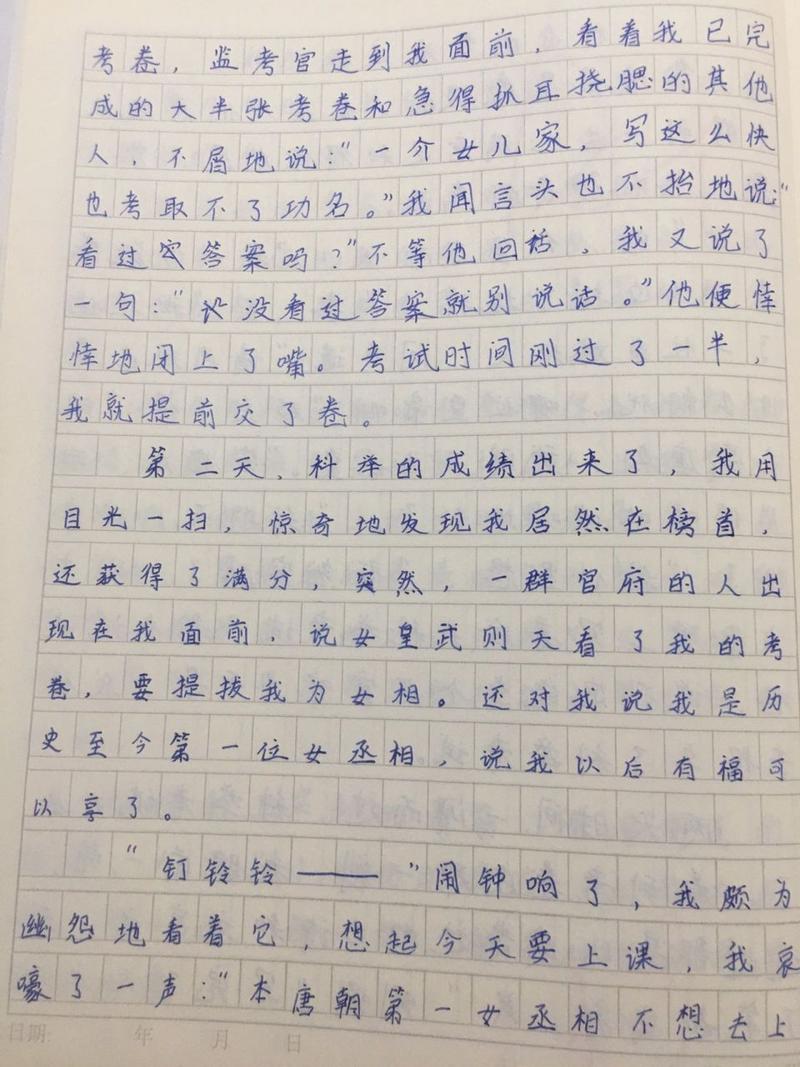 考卷，监考官走到我面前，看着我已完
成的大半张考卷和急得抓耳挠腮的其他
人，不屑地说：“一介女儿家，写这么快
也考取不了功名。”我闻言头也不抬地说：“
看过答案吗？”不等他回话，我又说了
一句：“没看过答案就别说话。”他便悻
悻地闭上了嘴。考试时间刚过了一半，
我就提前交了卷。
第二天，科举的成绩出来了，我用
目光一扫，惊奇地发现我居然在榜首，
还获得了满分，突然，一群官府的人出
现在我面前，说女皇武则天看了我的考
卷，要提拔我为女相。还对我说我是历
史至今第一位女丞相，说我以后有福可
以享了。
“钉铃铃——”闹钟响了，我颇为
幽怨地看着它，想起今天要上课，我哀
嚎了一声：“本唐朝第一女丞相不想去上
日期： 年 月 日